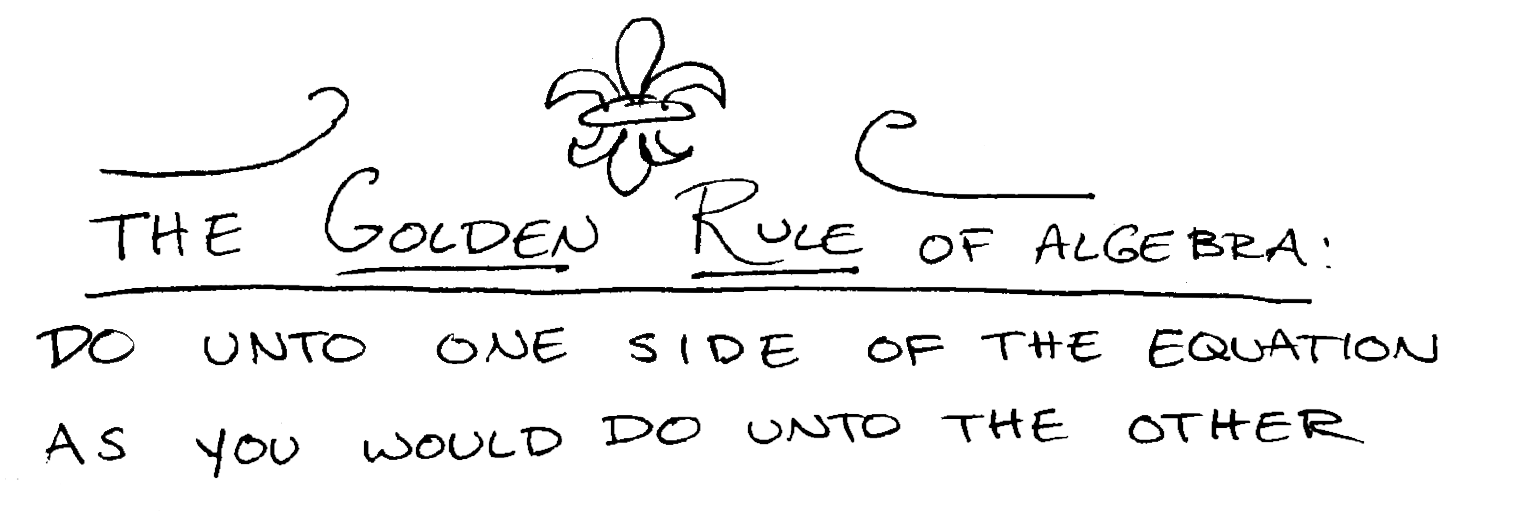 THE GOLDEN RULE OF ALGEBRA:
DO UNTO ONE SIDE OF THE EQUATION
AS YOU WOULD DO UNTO THE OTHER